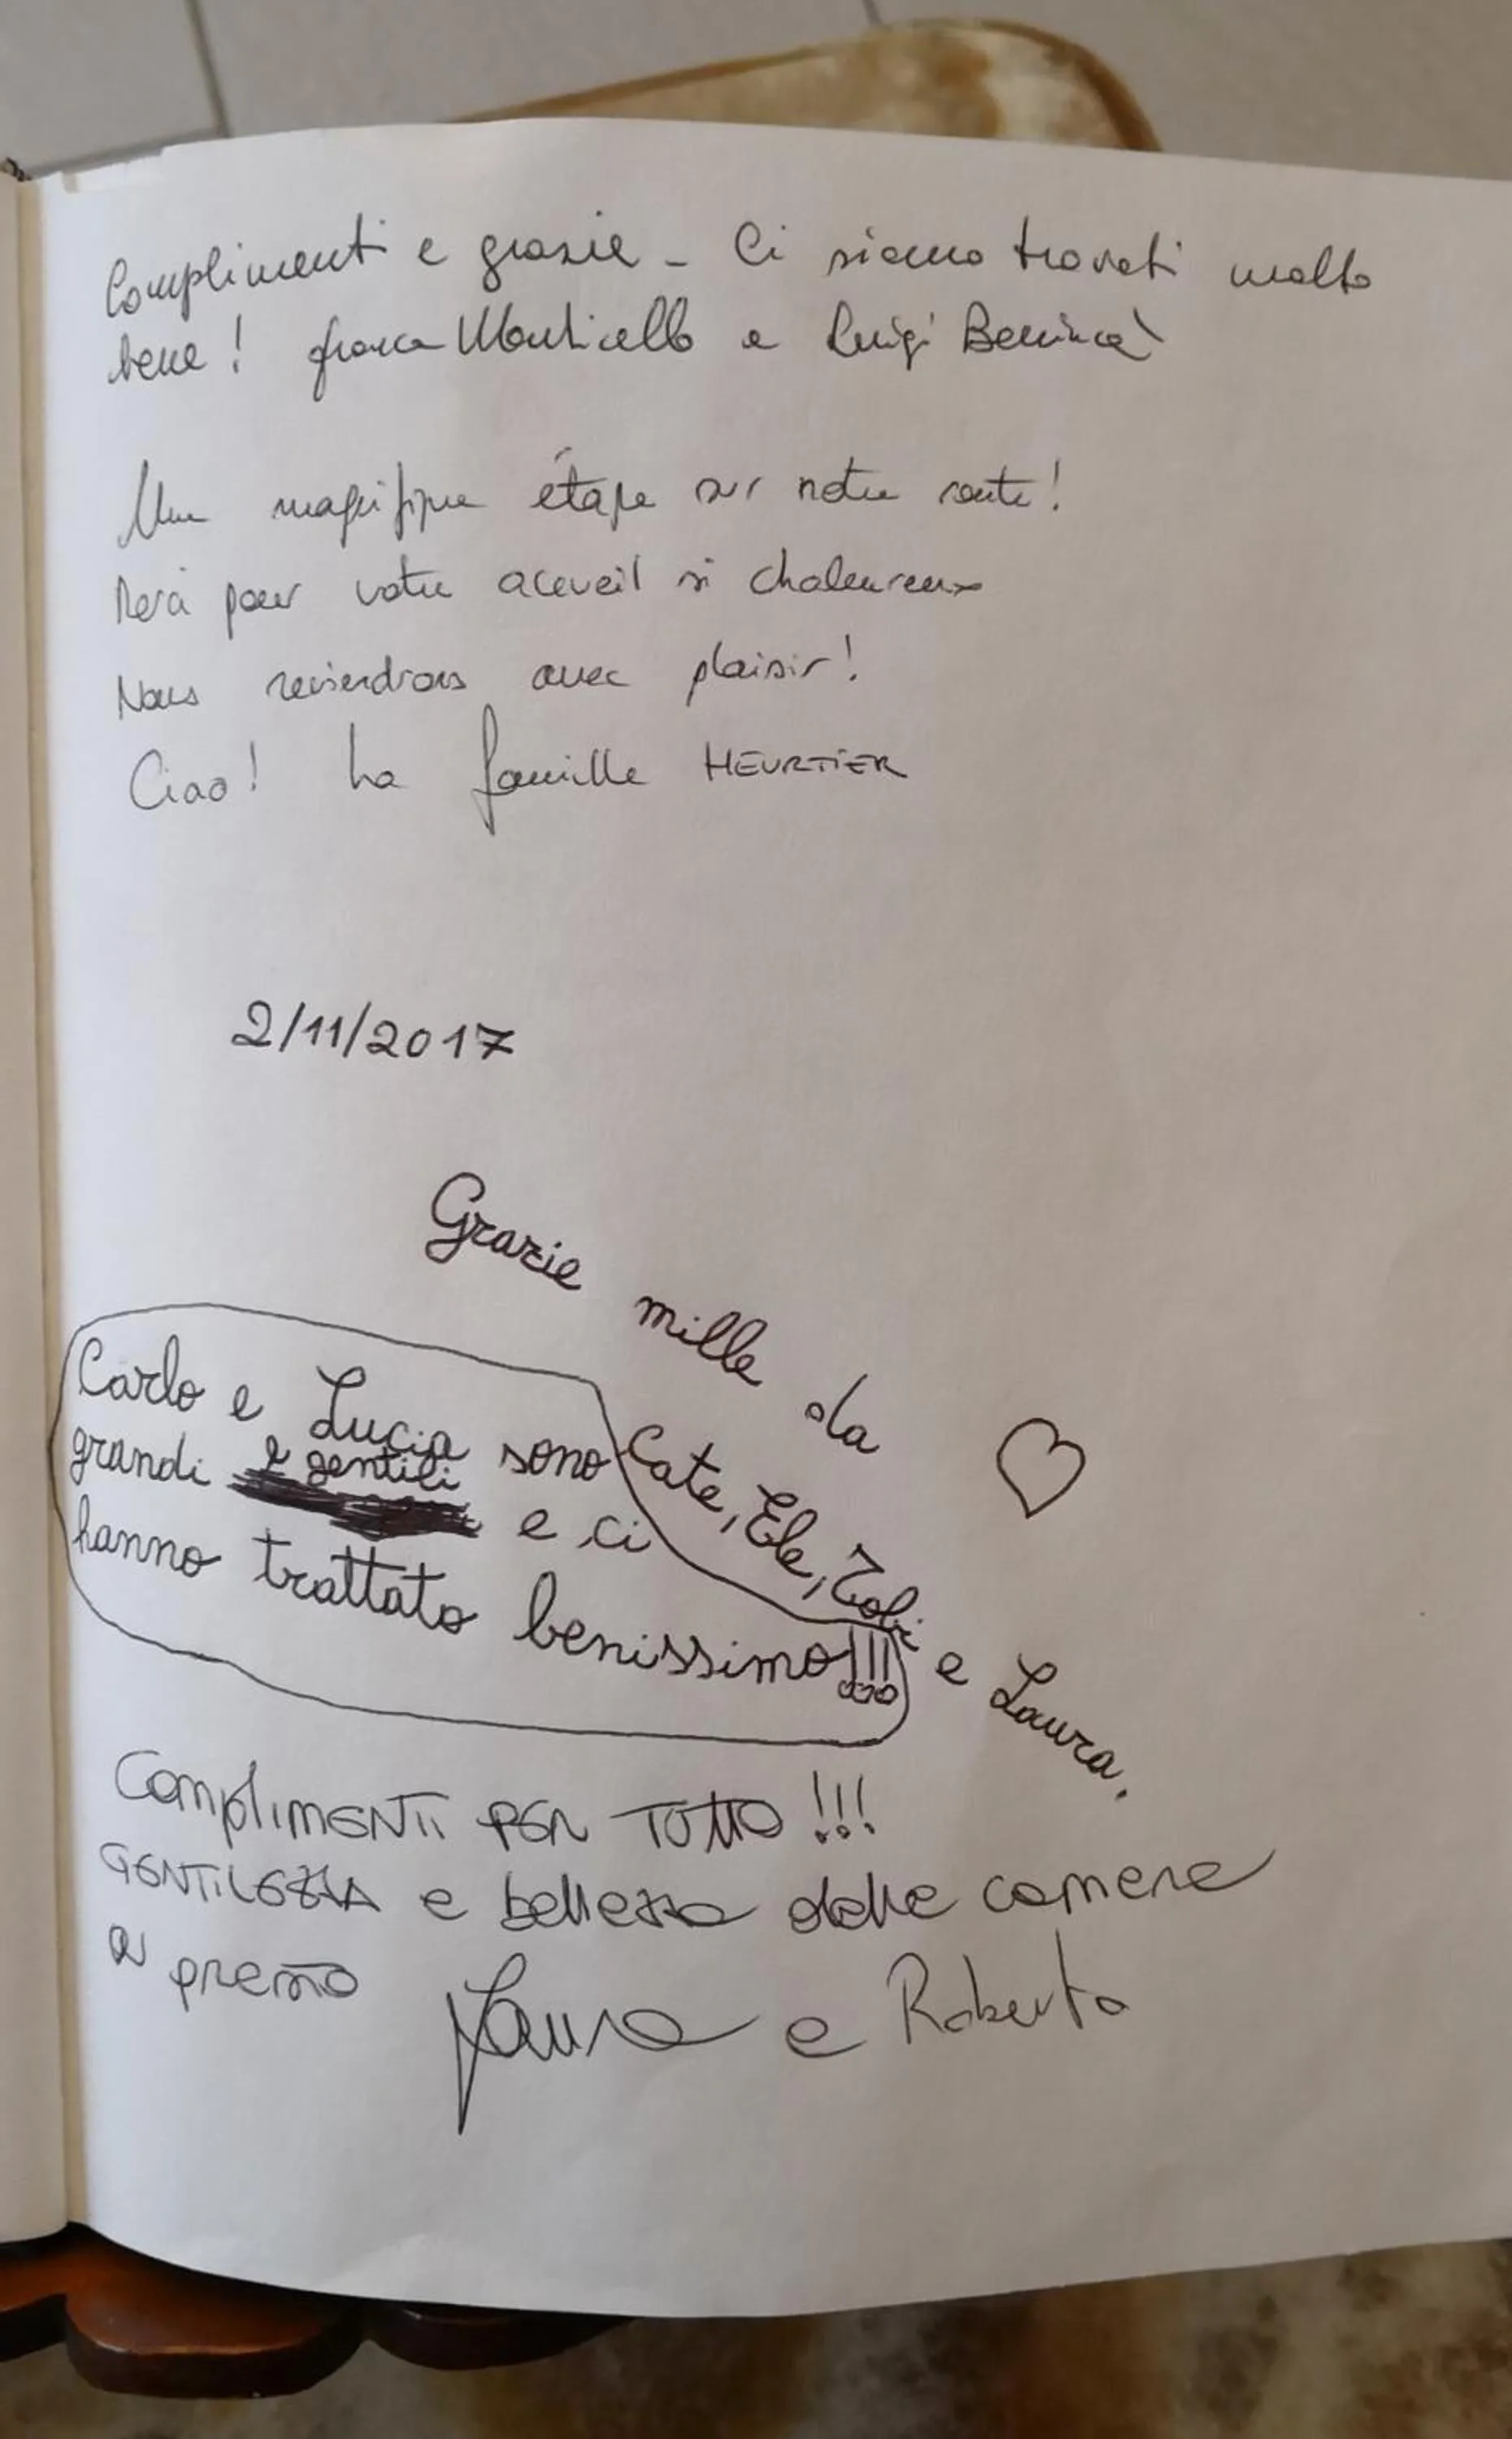 Complimenti e grazie - Ci siamo trovati molto
bene! Franca Monticello e Luigi Benincà
Une magnifique étape sur notre route!
pour votre acceuil si chaleureux
Nous reviendrons avec plaisir!
Ciao! La famille HEURTIER
2/11/2017
Grazie mille da
Cate, Ele, Tobi e Laura.
Carlo e Lucia sono
grandi e gentili
e ci
hanno trattato benissimo!!!
COMPLIMENTI PER TUTTO!!!
GENTILEZZA e bellezza delle camere
A presto
Laura e Roberto